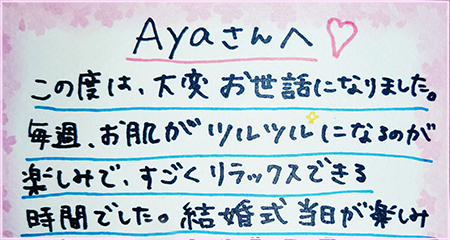 Ayaさんへ♡
この度は、大変お世話になりました。
毎週、お肌がツルツルになるのが
楽しみで、すごくリラックスできる
時間でした。結婚式当日が楽しみ